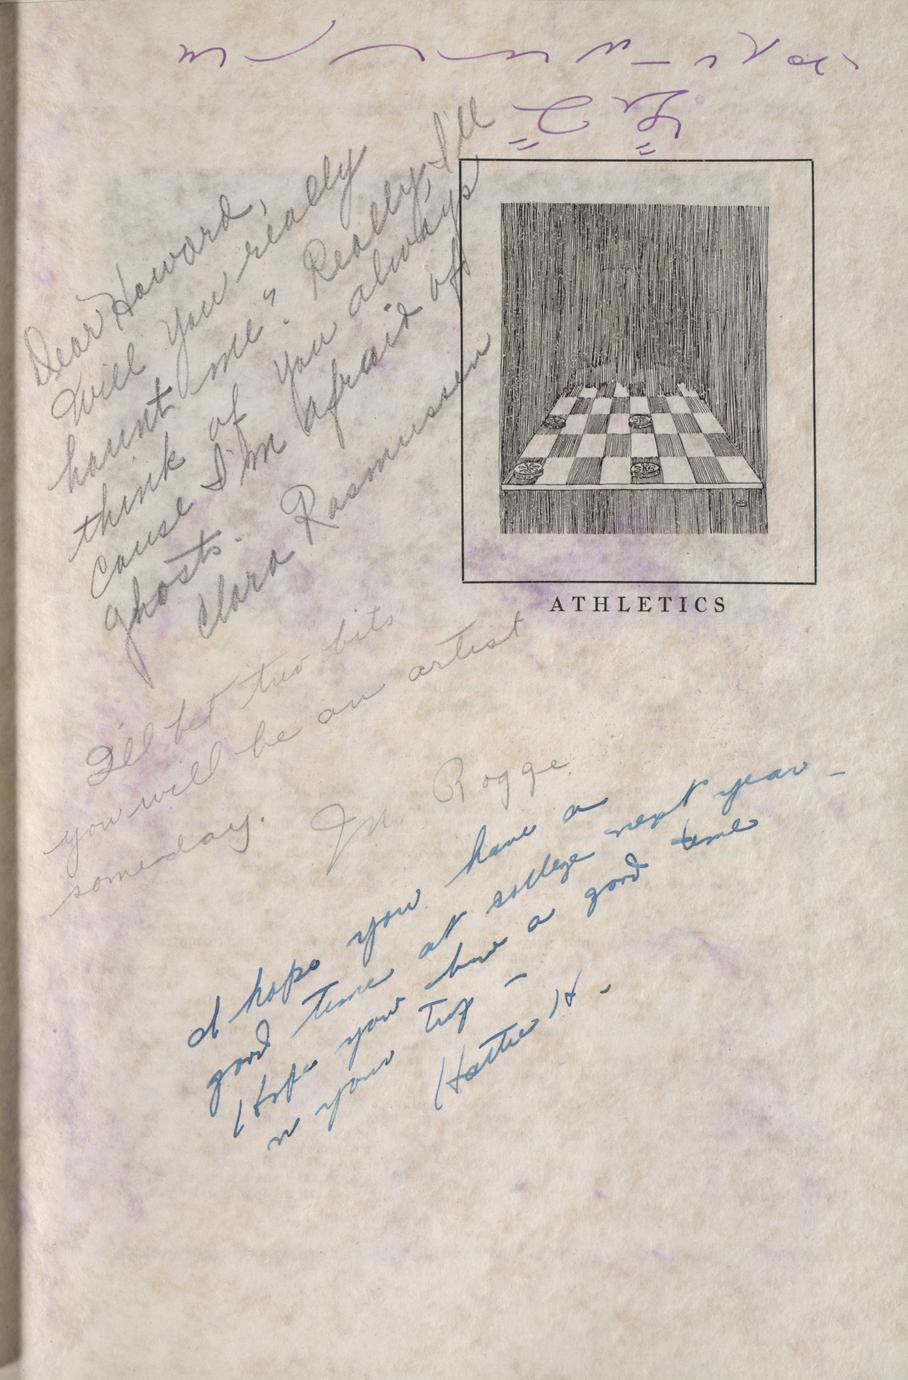 Dear Howard,
Will you really
haunt me? Really, I'll
think of you always
cause I'm afraid of
ghosts.
Clara Rasmussen
ATHLETICS
I'll bet two bits
you will be an artist
someday.
Rogge
I hope you have a
good time at college next year -
Hope you have a good time
n your trip -
Hattie H.